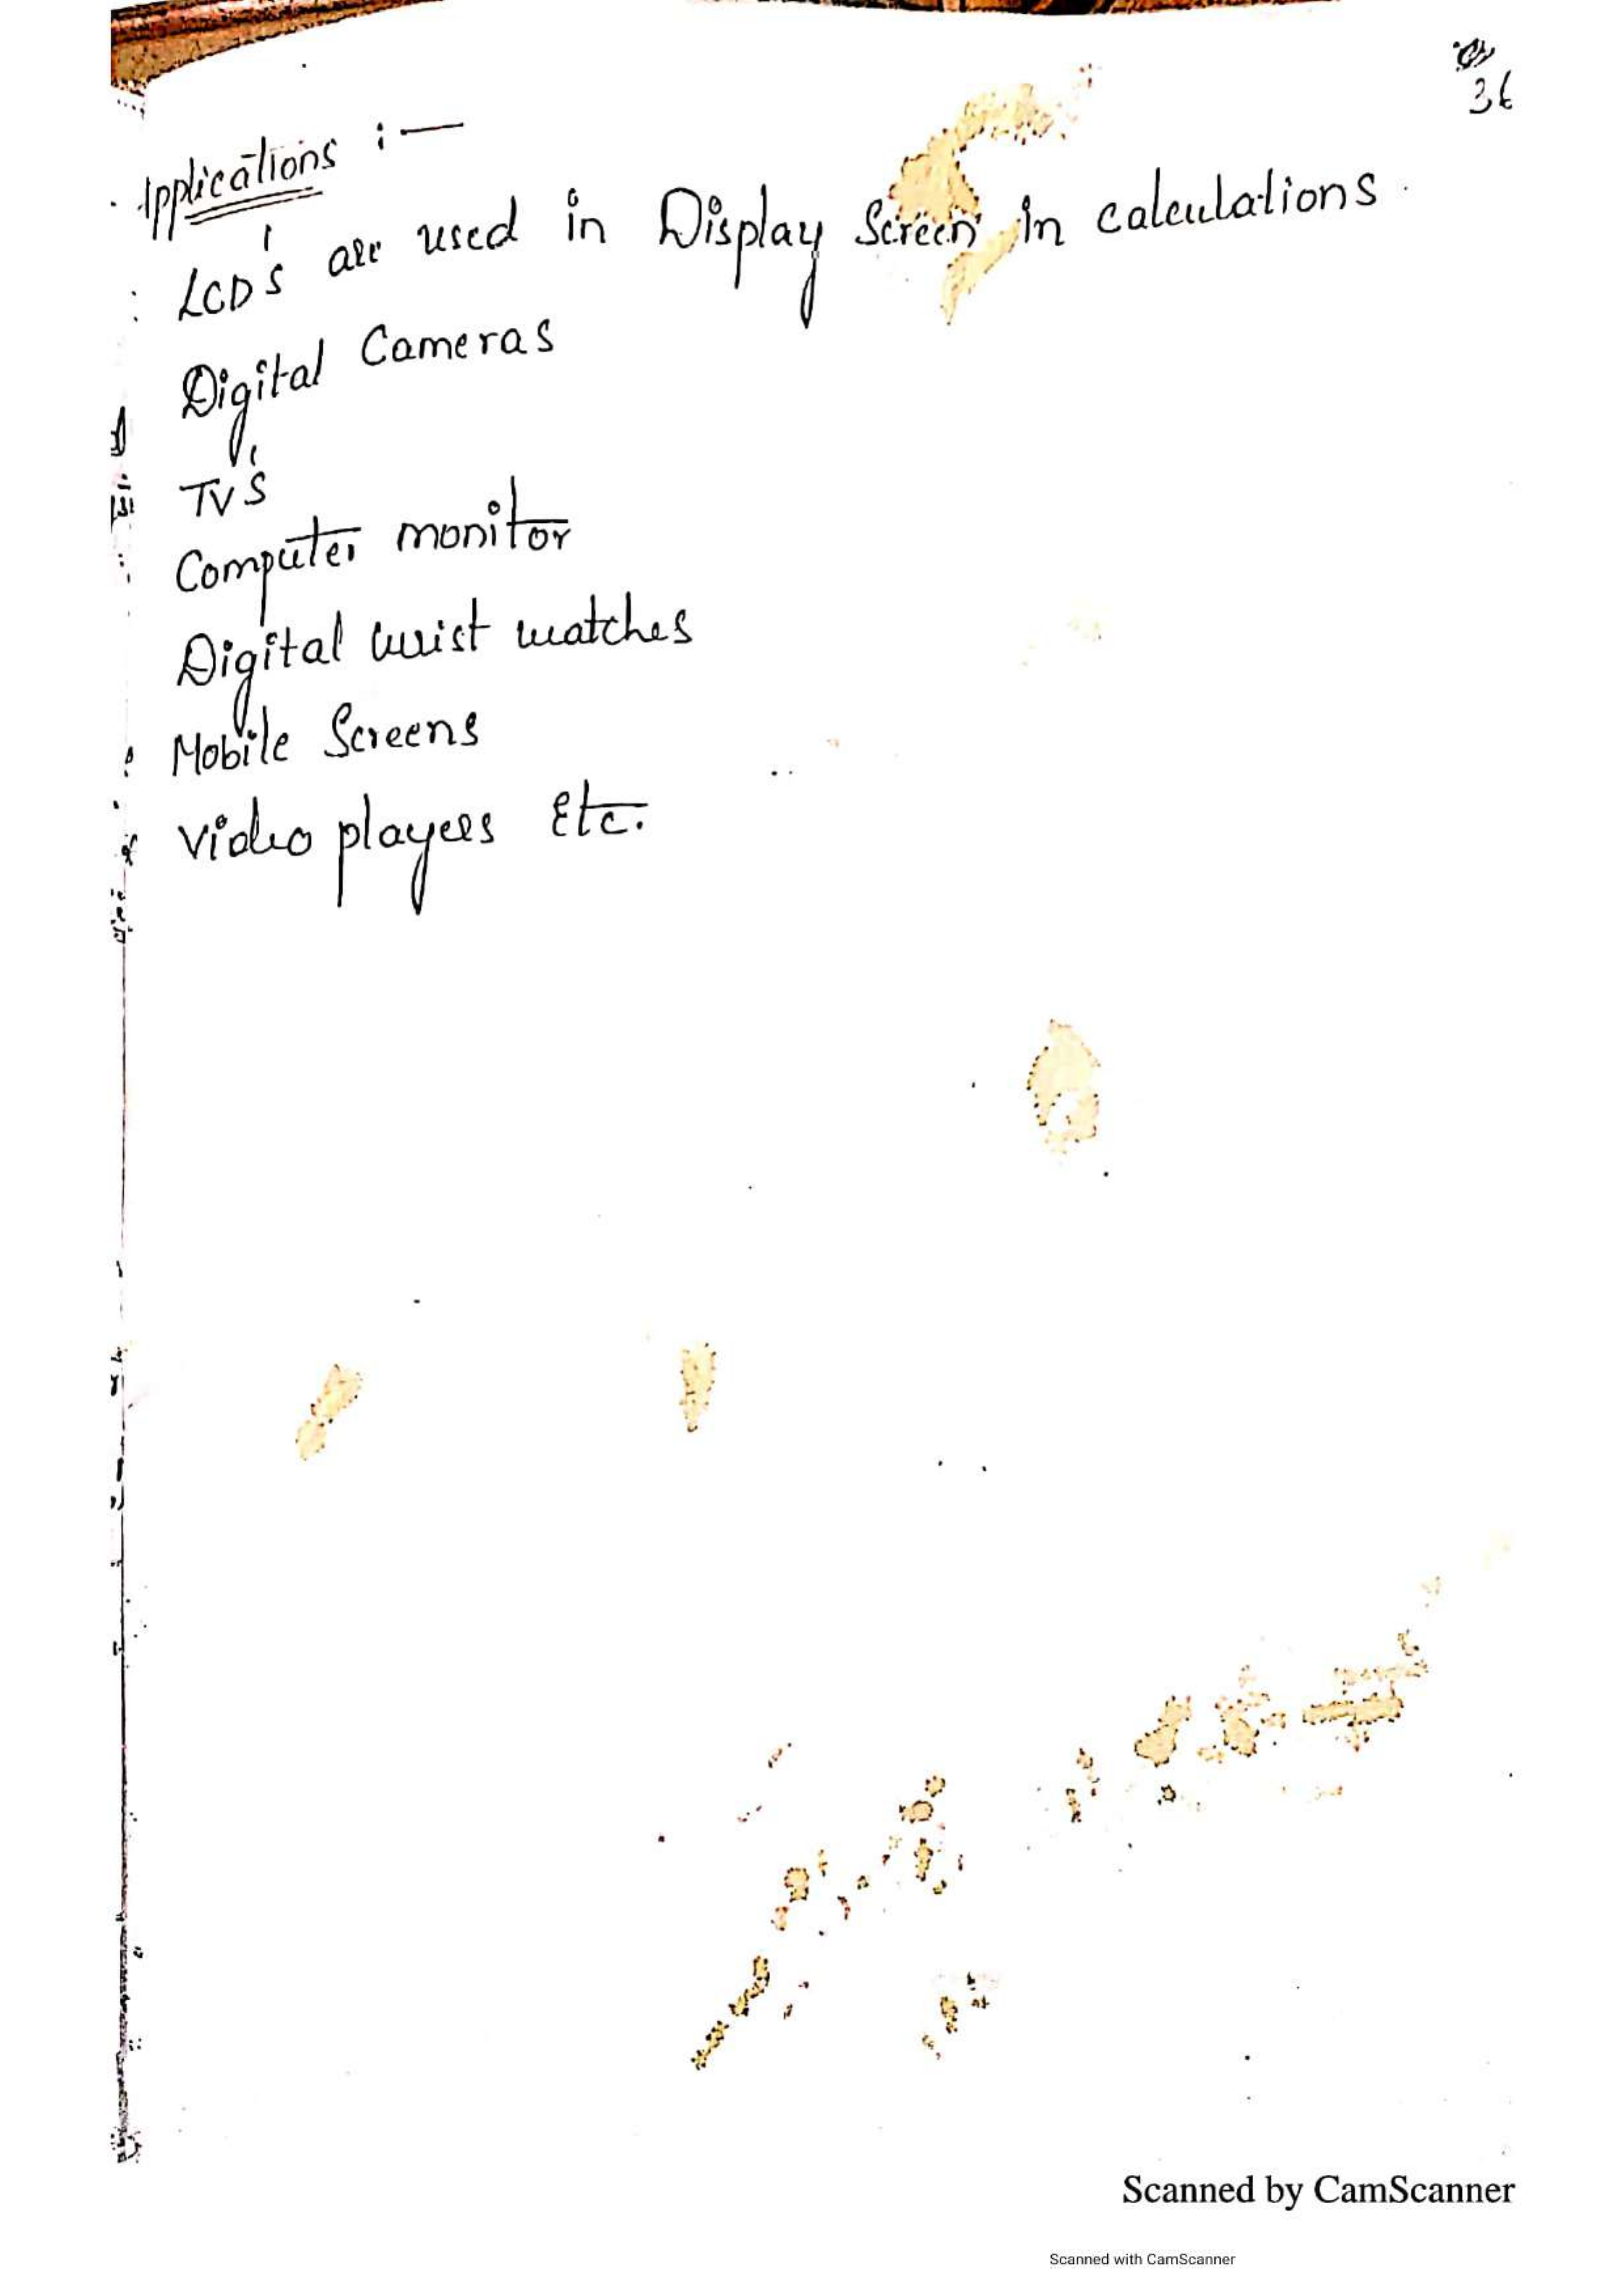 36
Applications :—
LCD's are used in Display Screen in calculations.
Digital Cameras
TV's
Computer monitor
Digital wrist watches
Mobile Screens
Video players Etc.
Scanned by CamScanner
Scanned with CamScanner